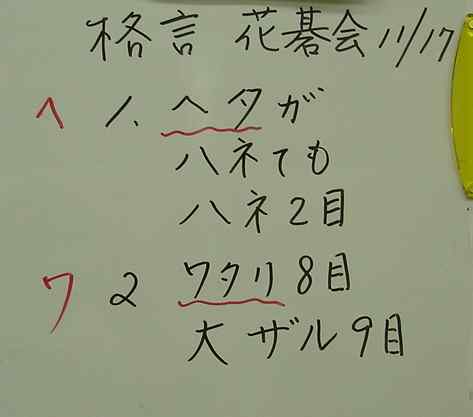 格言 花碁会 11/17
ヘ 1. ヘタが
ハネても
ハネ2目
ワ 2 ワタリ8目
大ザル9目